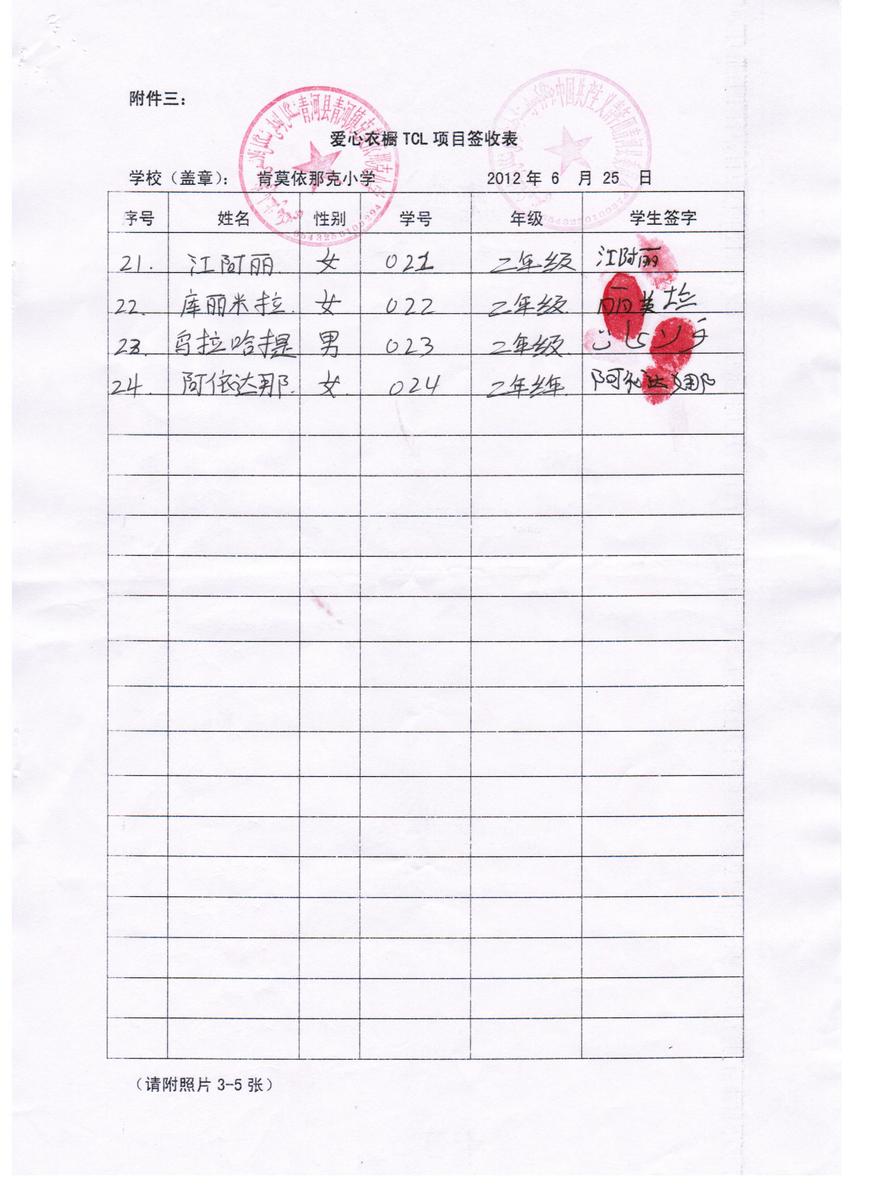 附件三：
爱心衣橱 TCL 项目签收表
学校（盖章）： 肯莫依那克小学 2012 年 6 月 25 日
序号 姓名 性别 学号 年级 学生签字
21. 江阿丽 女 021 二年级 江阿丽
22. 库丽米拉 女 022 二年级
23. 乌拉哈提 男 023 二年级
24. 阿依达那 女 024 二年
（请附照片 3-5 张）